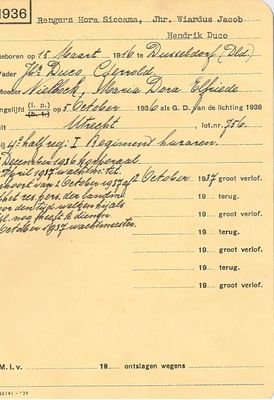 1936
Rengers Hora Siccama, Jhr. Wiardus Jacob
Hendrik Duco
Geboren op 15 Maart 1916 te Dusseldorf (Dld.)
Vader Jhr. Duco Gerrold
Moeder Nielbock, Maria Dora Elfriede
Ingelijfd (l. p.) op 5 October 1936 als G. D. van de lichting 1936
(b. t.)
uit Utrecht lot.nr. 756.
bij 4e half reg: I Regiment huzaren.
December 1936 Korporaal.
April 1937 wachtm: tit.
behoort van 1 October 1937 af October 1937 groot verlof.
het res. pers. der landm. 19 terug.
voor den tijd welken hij als 19 groot verlof.
nog heeft te dienen.
October 1937 wachtmeester. 19 terug.
19 groot verlof.
19 terug.
19 groot verlof.
M. i. v. 19 ontslagen wegens
- '39